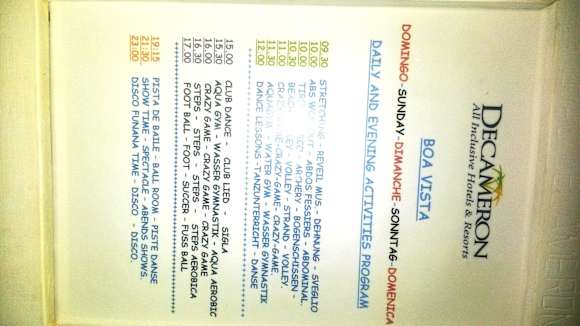 DECAMERON
All Inclusive Hotels & Resorts
BOA VISTA
DOMINGO-SUNDAY-DIMANCHE-SONNTAG-DOMENICA
DAILY AND EVENING ACTIVITIES PROGRAM
09 30 STRETCHING - REVEIL MUS. - DEHNUNG - SVEGLIO
10.00 ABS - ABDOS FESSIERS - ABDOMINAL.
10.00 - ARCHERY - BOGENSCHISSEN -
10.30 BEACH - VOLLEY - STRAND - VOLLEY.
11.00 CRAZY GAME-CRAZY-GAME.
11.30 AQUAGYM - WATER GYM - WASSER GYMNASTIK
12.00 DANCE LESSONS-TANZUNTERRICHT - DANSE
15.00 CLUB DANCE - CLUB LIED - SIGLA
15.30 AQUA GYM - WASSER GYMNASTIK - AQUA AEROBIC
16.00 CRAZY GAME - CRAZY GAME - CRAZY GAME
16.30 STEPS - STEPS - STEPS - STEPS AEROBICA
17.00 FOOT BALL - FOOT - SUCCER - FUSS BALL
19:15 PISTA DE BAILE - BALL ROOM - PISTE DANSE
21:30 SHOW TIME - SPECTACLE - ABENDS SHOWS.
23:00 DISCO FUNANA TIME - DISCO - DISCO.